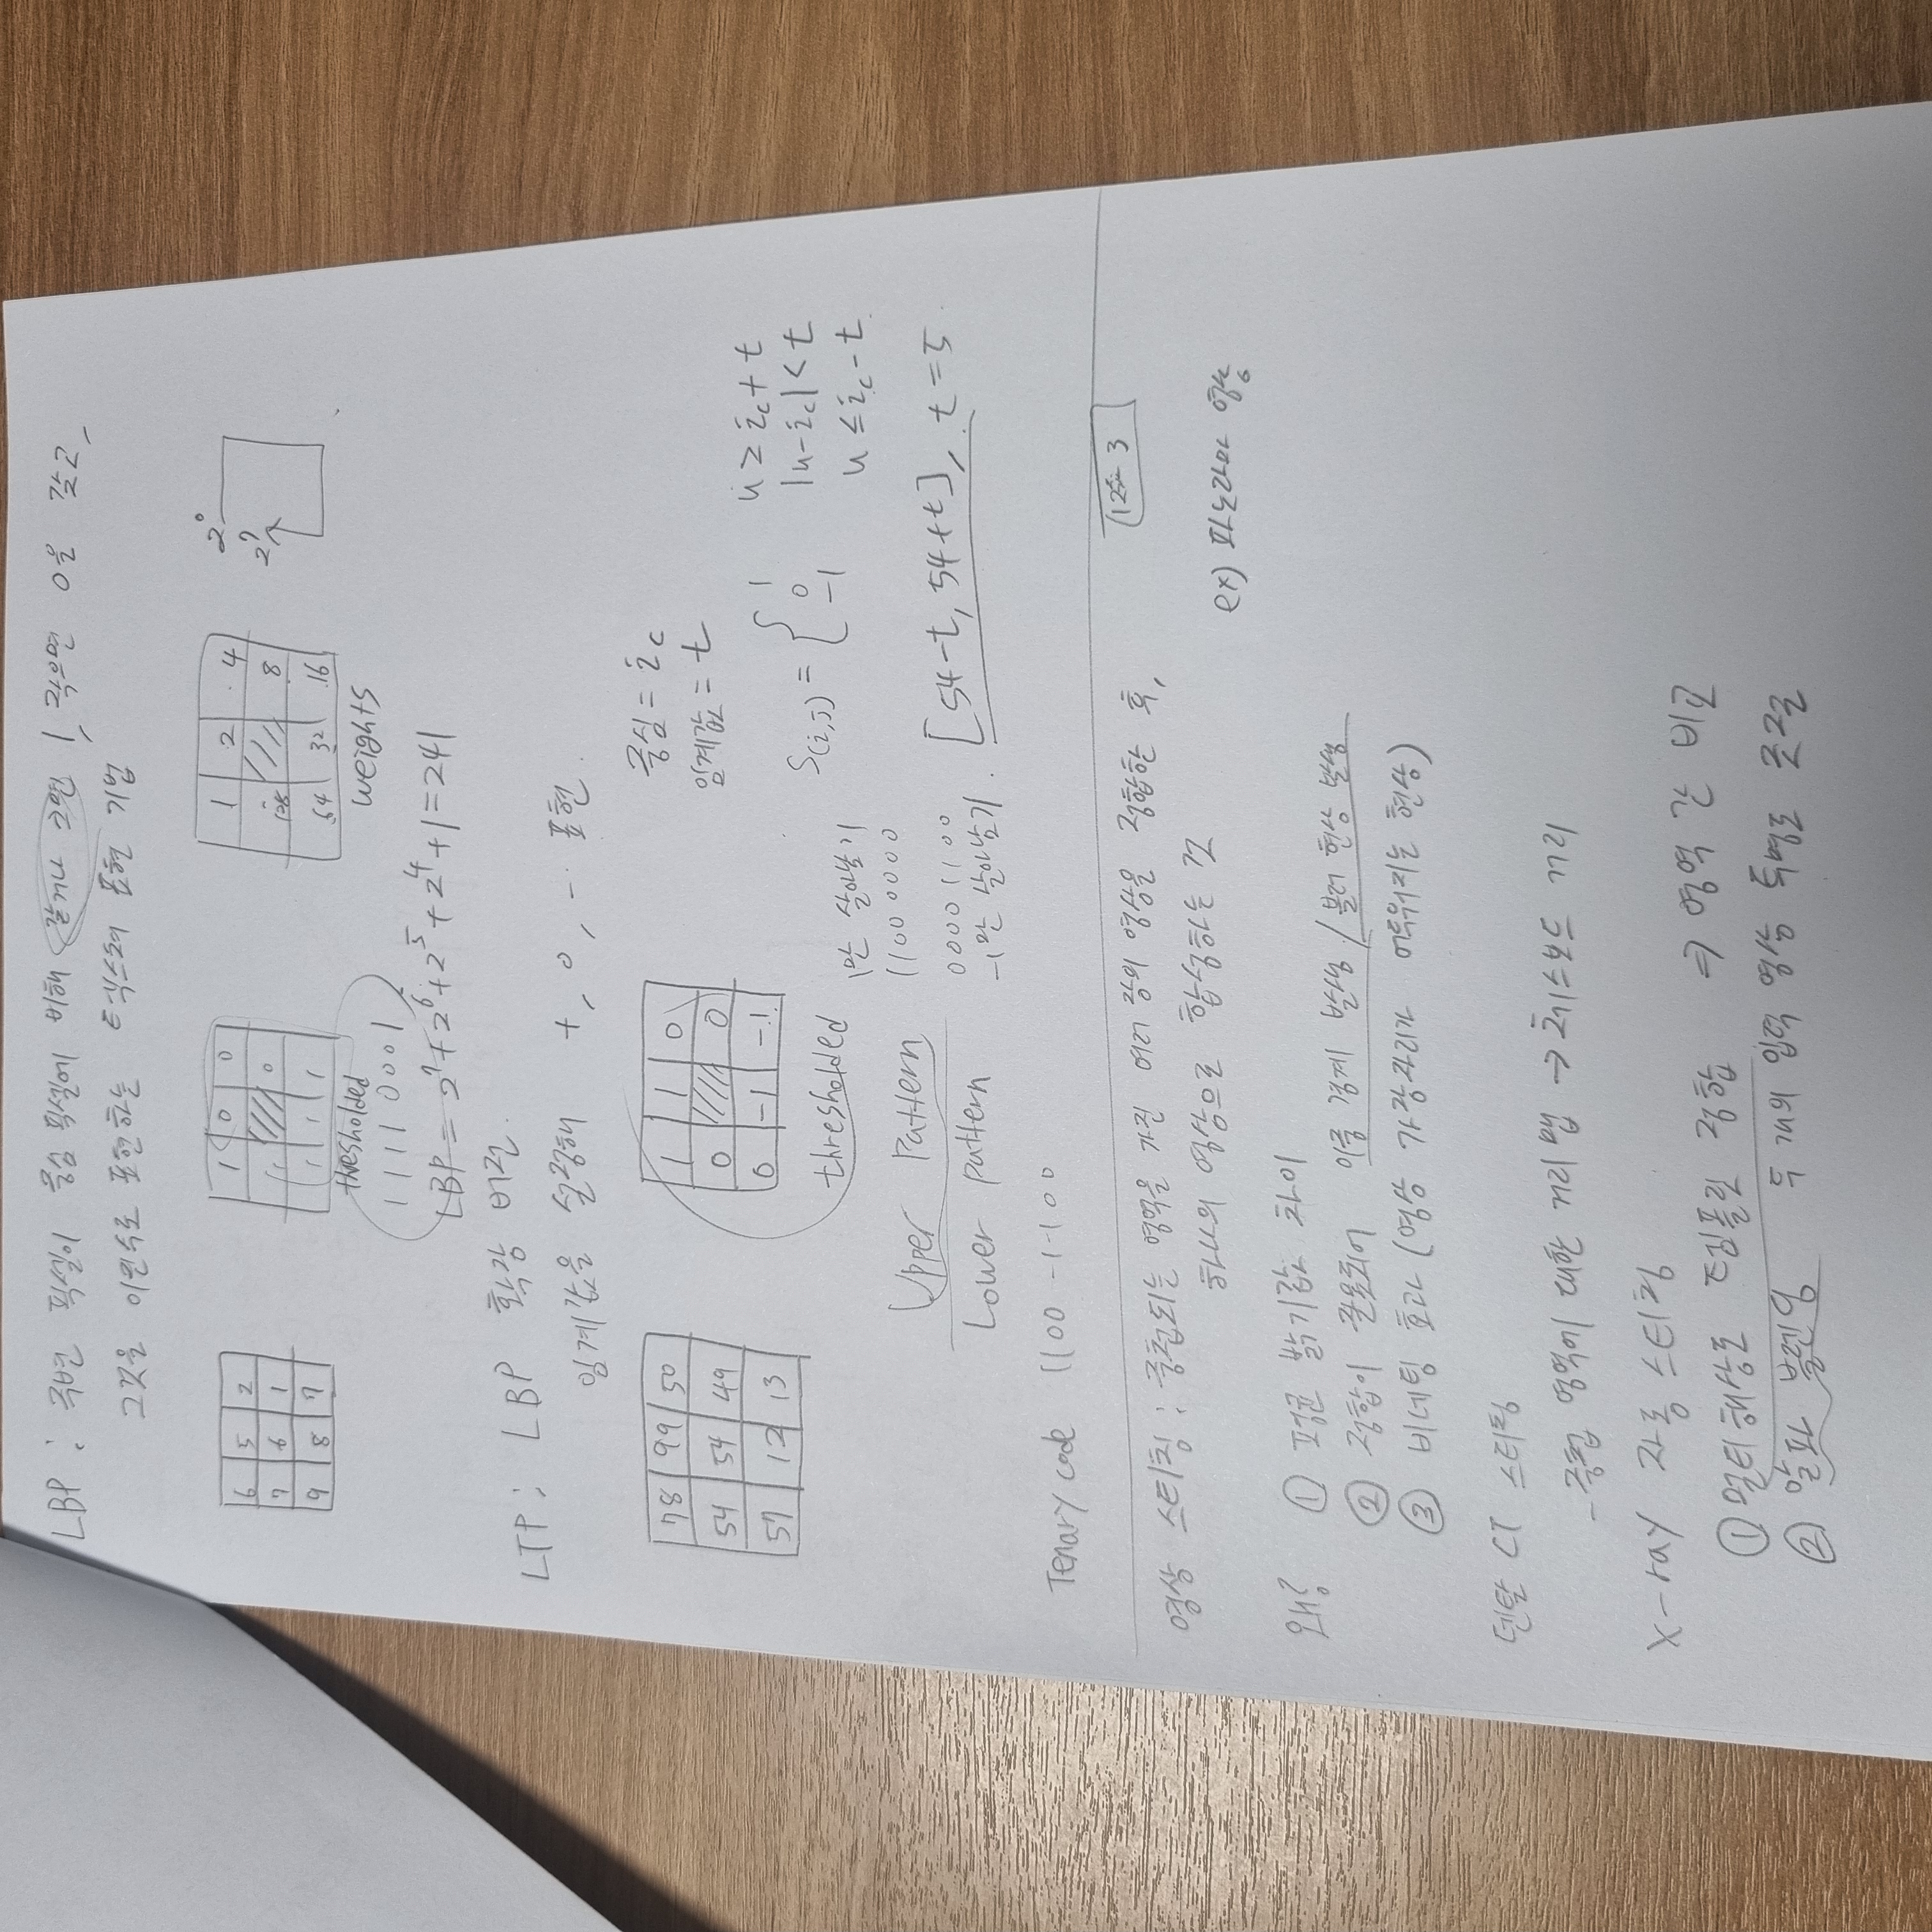 LBP : 주변 픽셀이 중심 픽셀에 비해 같거나 크면 1, 작으면 0을 갖고,
그것을 이진수로 표현하는 텍스쳐 표현 기법
6 5 2
7 6 1
9 8 7
1 0 0
1 0
1 1 1
thresholded
11110001
LBP = 2⁷+2⁶+2⁵+2⁴+1=241
1 2 4
128 8
64 32 16
weights
2⁰
2⁷
LTP : LBP 확장 버전.
임계값을 설정해 +, 0, - 표현.
78 99 50
54 54 49
57 12 13
1 1 0
0 0
0 -1 -1
thresholded
중심 = i_c
임계값 = t
S(i,j) = { 1 u ≥ i_c + t
0 |u-i_c| < t
-1 u ≤ i_c - t
Upper Pattern
1만 살아남기
11000000
Lower pattern
00001100
-1만 살아남기.
[54-t, 54+t], t=5
Tenary code 1100 -1-100
영상 스티칭 : 중첩되는 영역을 가진 여러 장의 영상을 정합한 후,
하나의 영상으로 합성하는 것
ex) 파노라마 영상
왜? ① 평균 밝기값 차이
② 정합이 잘못되어 이중 경계 발생 / 블러 현상 발생
③ 비네팅 효과 (영상 가장자리가 어두워지는 현상)
덴탈 CT 스티칭
- 중첩 영역에 대한 거리 맵 → 체스보드 거리
X-ray 자동 스티칭
① 멀티해상도 템플릿 정합 ⇒ 영역 간 비교
② 알파 블렌딩 두 개의 입력 영상 투명도 조절